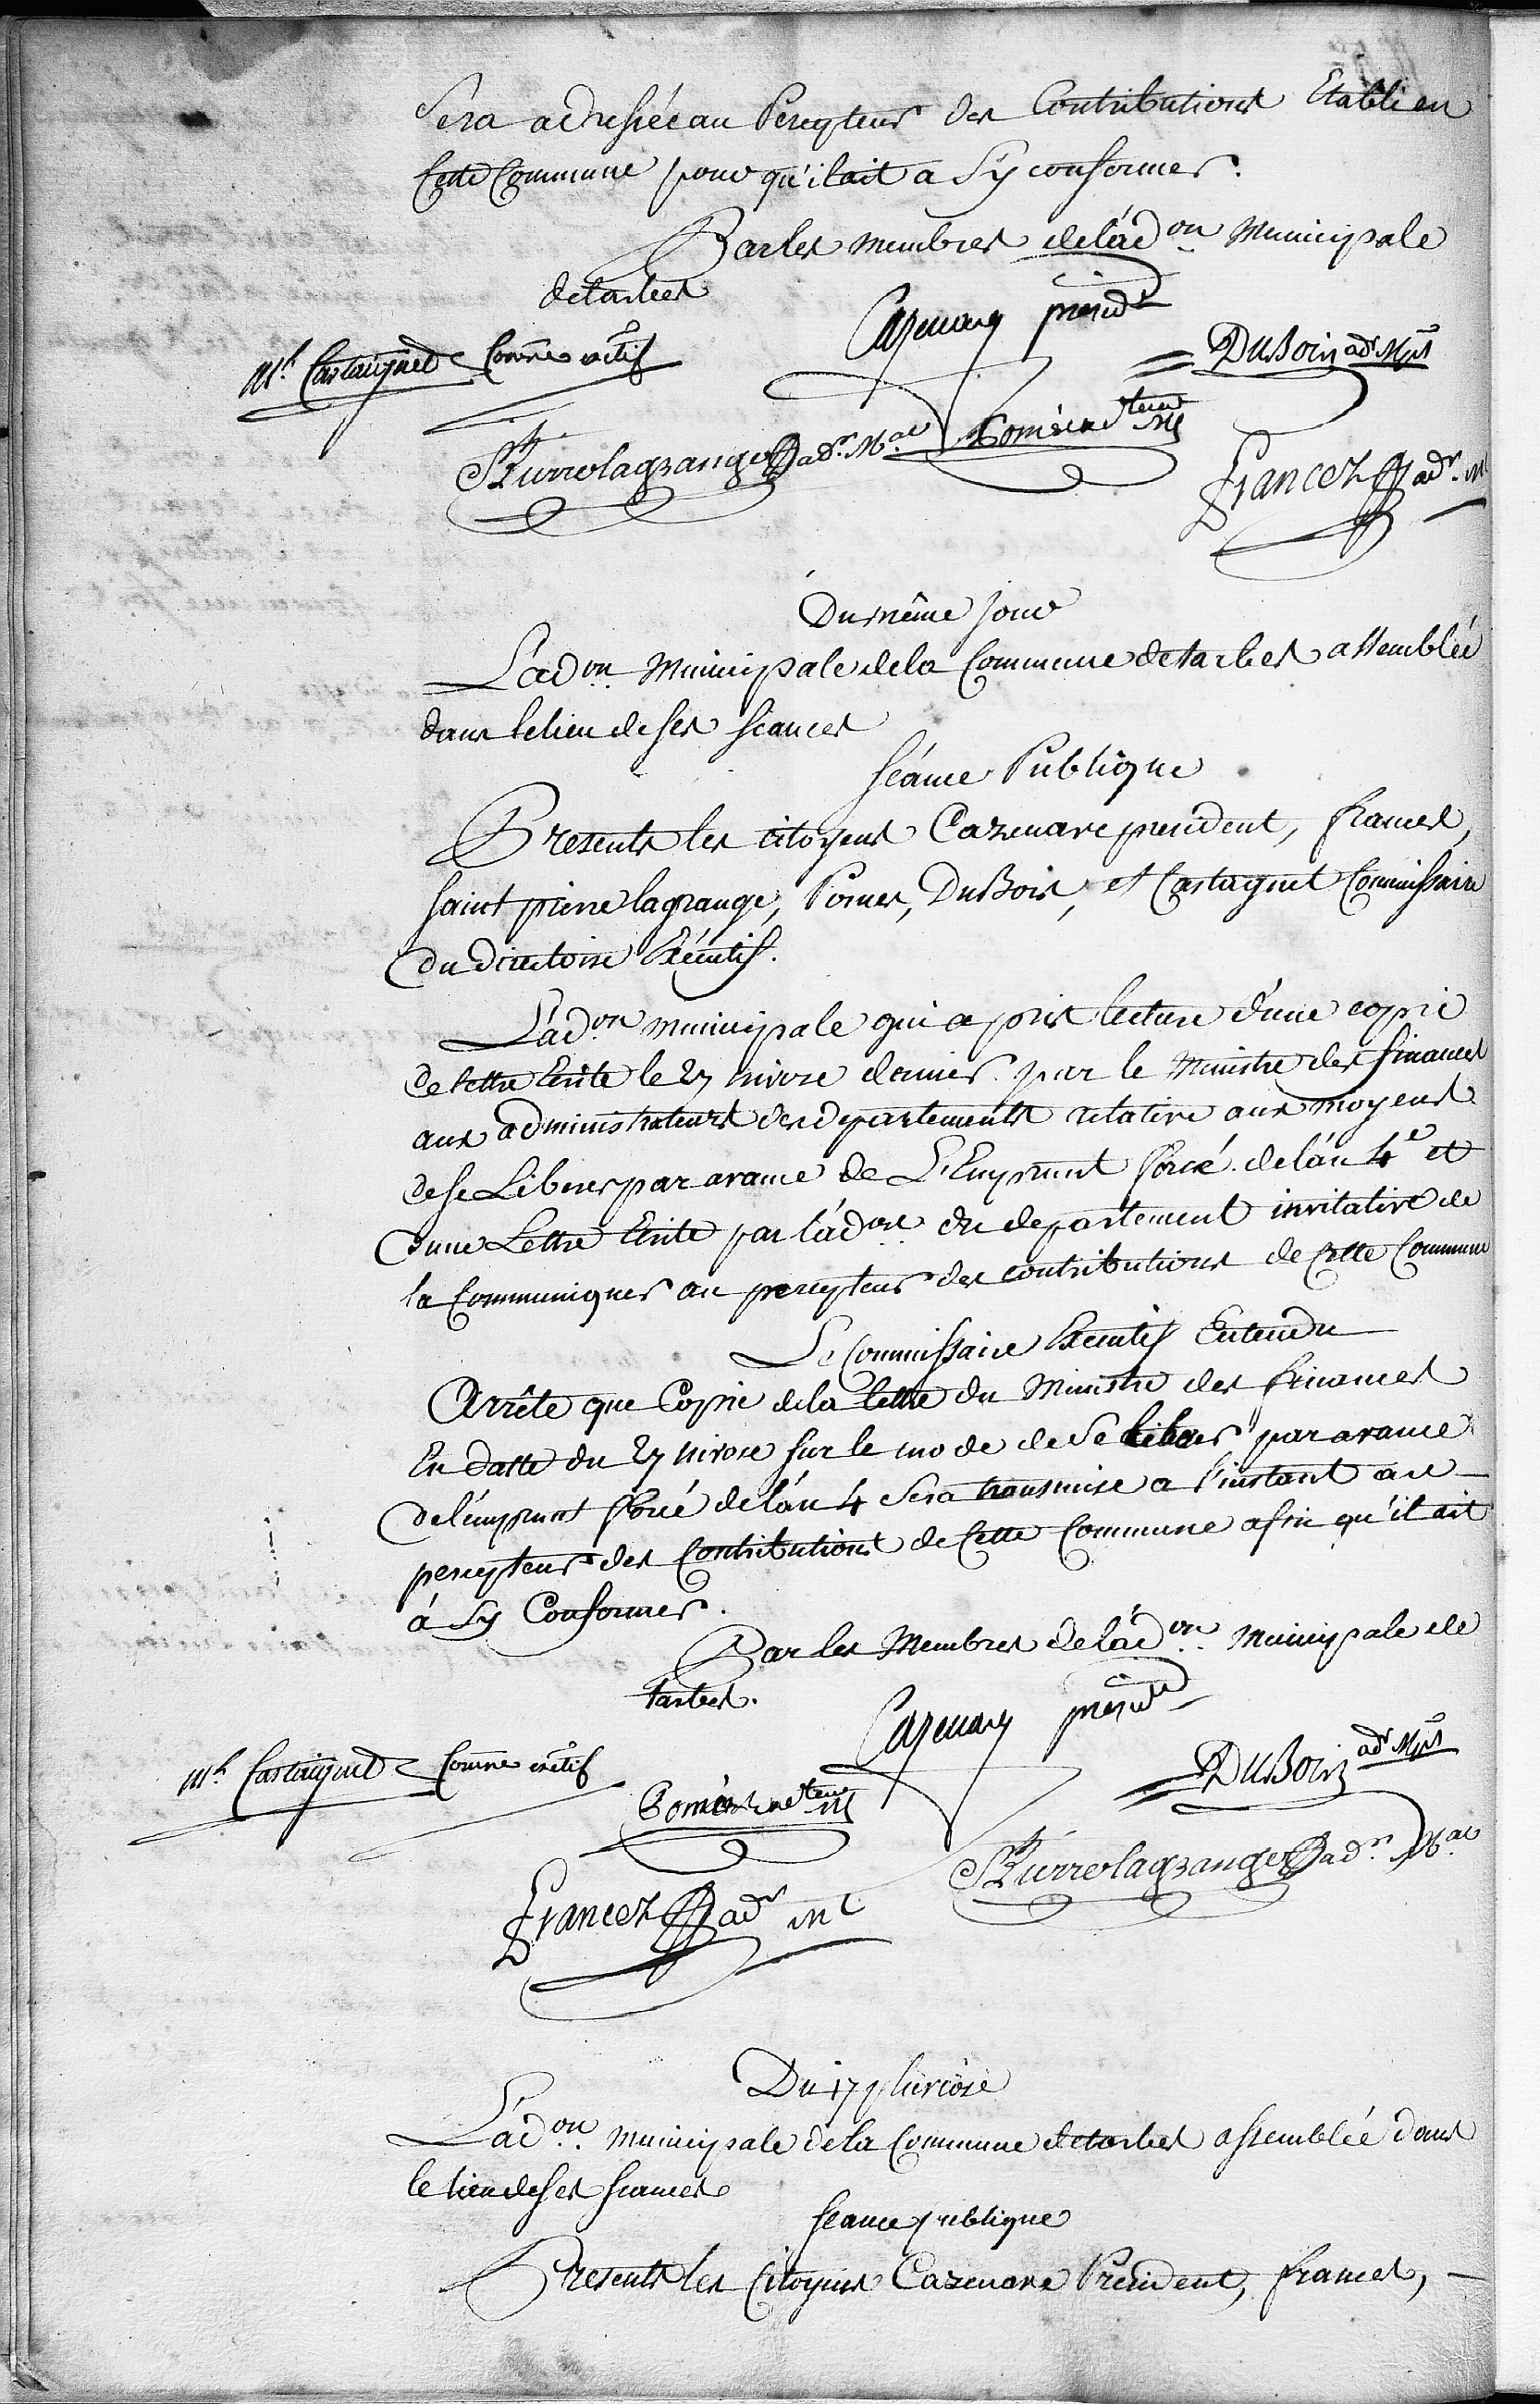 Sera adressée au Percepteur des Contributions Etabli en
Cette Commune pour qu'il ait a S'y conformer.
Par les membres de l'ad.on Municipale
de tarbes
Cazenave présid.t
M.l Castaignet Comre. exétif
DuBois ad.r Mpal
St Pierrelagrange ad.r M.al
Pomès
Francez ad.r m.l
Du même jour
L'ad.on Municipale de la Commune de tarbes assemblée
dans le lieu de ses séances
séance Publique
Présents les citoyens Cazenave president, frances,
saint pierre lagrange, Pomes, DuBois, et Castagnet Commissaire
du directoire Exécutif.
L'ad.on municipale qui a pris lecture d'une copie
de lettre Ecrite le 27 nivose dernier par le Ministre des finances
aux administrateurs des departements relative aux moyens
de se Liberer par avance de L'Emprunt forcé de l'an 4e et
d'une Lettre Ecrite par l'ad.on du departement invitative de
la Communiquer au percepteur des contributions de Cette Commune
Le Commissaire Executif Entendu
Arrête que Copie de la lettre du Ministre des finances
En datte du 27 nivose sur le mode de Se liberer par avance
de l'emprunt forcé de l'an 4 Sera transmise a l'instant au
percepteur des Contributions de Cette Commune afin qu'il ait
à S'y Conformer.
Par les Membres de l'ad.on Municipale de
tarbes.
Cazenave présid.t
M.l Castaignet Comre exétif
DuBois ad.r Mpal
Pomès
St Pierrelagrange ad.r M.al
Francez ad.r m.l
Du 17 pluviôse
L'ad.on Municipale de la Commune de tarbes assemblée dans
le lieu de ses séances
séance publique
Présents les Citoyens Cazenave Président, frances,